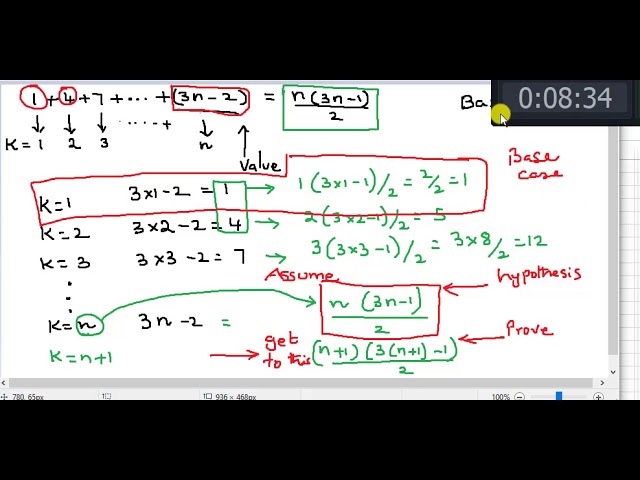 1 + 4 + 7 + ... + (3n-2) = n(3n-1)/2
Ba
0:08:34
K=1 2 3 ....+ n
Value
Base case
K=1 3×1-2 = 1 → 1(3×1-1)/2 = 2/2 = 1
K=2 3×2-2 = 4 → 2(3×2-1)/2 = 5
K=3 3×3-2 = 7 → 3(3×3-1)/2 = 3×8/2 = 12
Assume
hypothesis
K=n 3n-2 = n(3n-1)/2
Prove
K=n+1 → get to this (n+1)(3(n+1)-1)/2
780, 65px 936 × 468px 100%